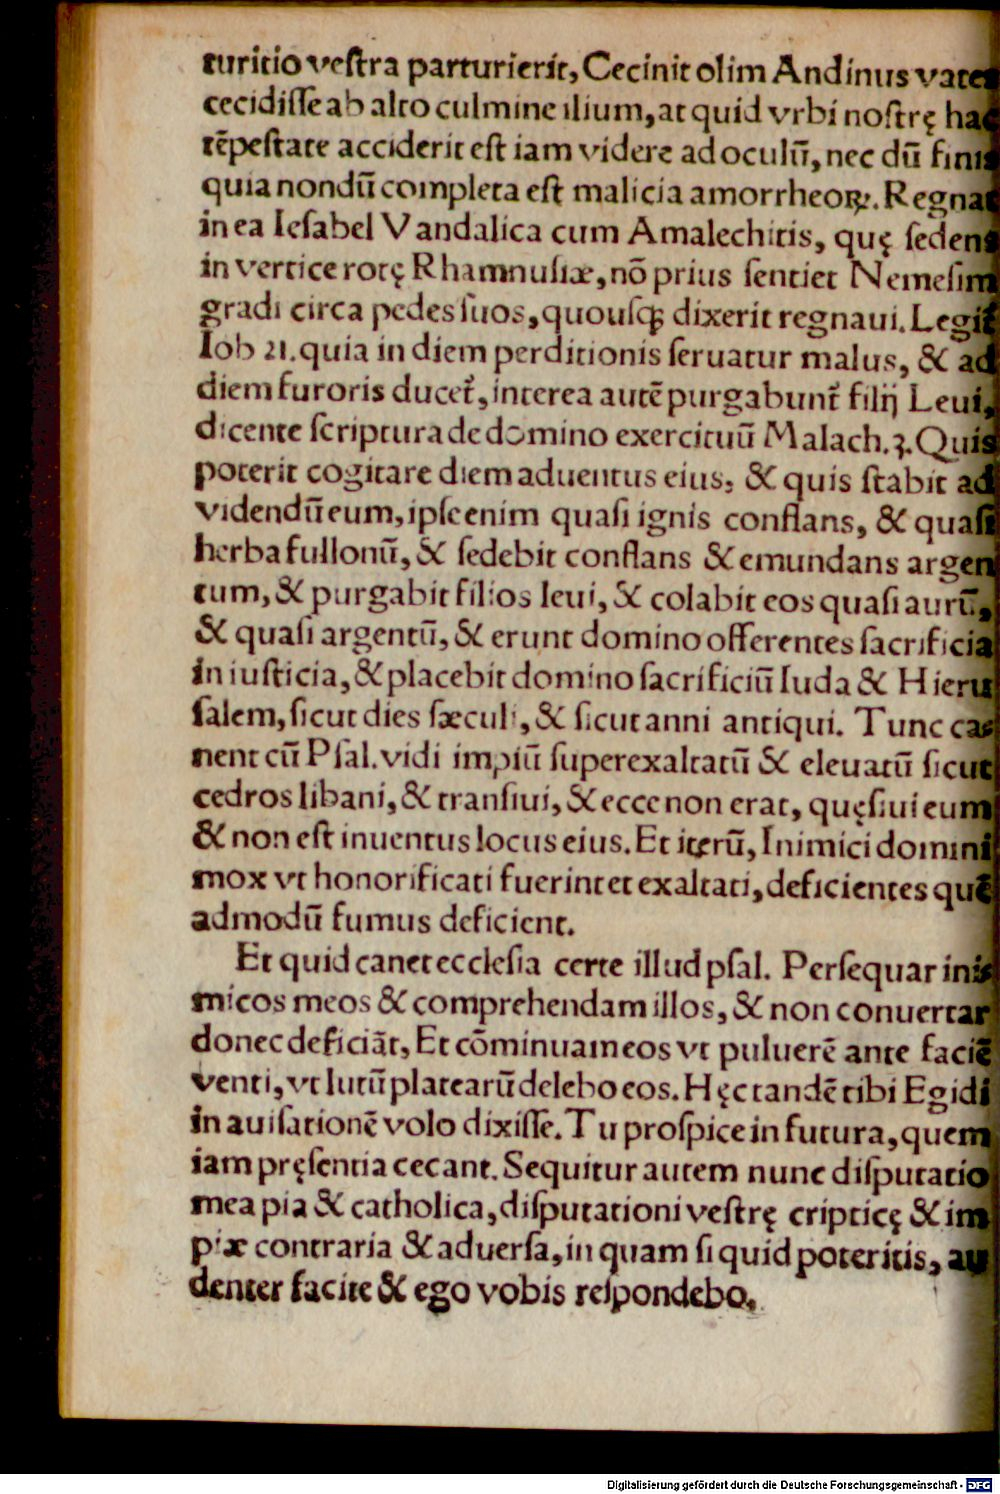 turitio veſtra parturierit, Cecinit olim Andinus vates
cecidiſſe ab alto culmine ilium, at quid vrbi noſtrę hac
tēpeſtate acciderit eſt iam videre ad oculū, nec dū finis
quia nondū completa eſt malicia amorrheoꝝ. Regnat
in ea Ieſabel Vandalica cum Amalechitis, quę ſedens
in vertice rotę Rhamnuſiæ, nō prius ſentiet Nemeſim
gradi circa pedes ſuos, quouſqꝫ dixerit regnaui. Legit̃
Iob 21. quia in diem perditionis ſeruatur malus, & ad
diem furoris ducet̃, interea autē purgabunt̃ filij Leui,
dicente ſcriptura de domino exercituū Malach.3. Quis
poterit cogitare diem aduentus eius, & quis ſtabit ad
videndū eum, ipſe enim quaſi ignis conflans, & quaſi
herba fullonū, & ſedebit conflans & emundans argen
tum, & purgabit filios leui, & colabit eos quaſi aurū,
& quaſi argentū, & erunt domino offerentes ſacrificia
in iuſticia, & placebit domino ſacrificiū Iuda & Hieru
ſalem, ſicut dies ſæculi, & ſicut anni antiqui. Tunc ca⸗
nent cū Pſal. vidi impiū ſuperexaltatū & eleuatū ſicut
cedros libani, & tranſiui, & ecce non erat, quęſiui eum
& non eſt inuentus locus eius. Et iterū, Inimici domini
mox vt honorificati fuerint et exaltati, deficientes quē
admodū fumus deficient.
Et quid canet eccleſia certe illud pſal. Perſequar ini⸗
micos meos & comprehendam illos, & non conuertar
donec deficiāt, Et cōminuam eos vt puluerē ante faciē
venti, vt lutū platearū delebo eos. Hęc tandē tibi Egidi
in auiſationē volo dixiſſe. Tu proſpice in futura, quem
iam pręſentia cecant. Sequitur autem nunc diſputatio
mea pia & catholica, diſputationi veſtrę cripticę & im
piæ contraria & aduerſa, in quam ſi quid poteritis, au
denter facite & ego vobis reſpondebo.
Digitalisierung gefördert durch die Deutsche Forschungsgemeinschaft - DFG